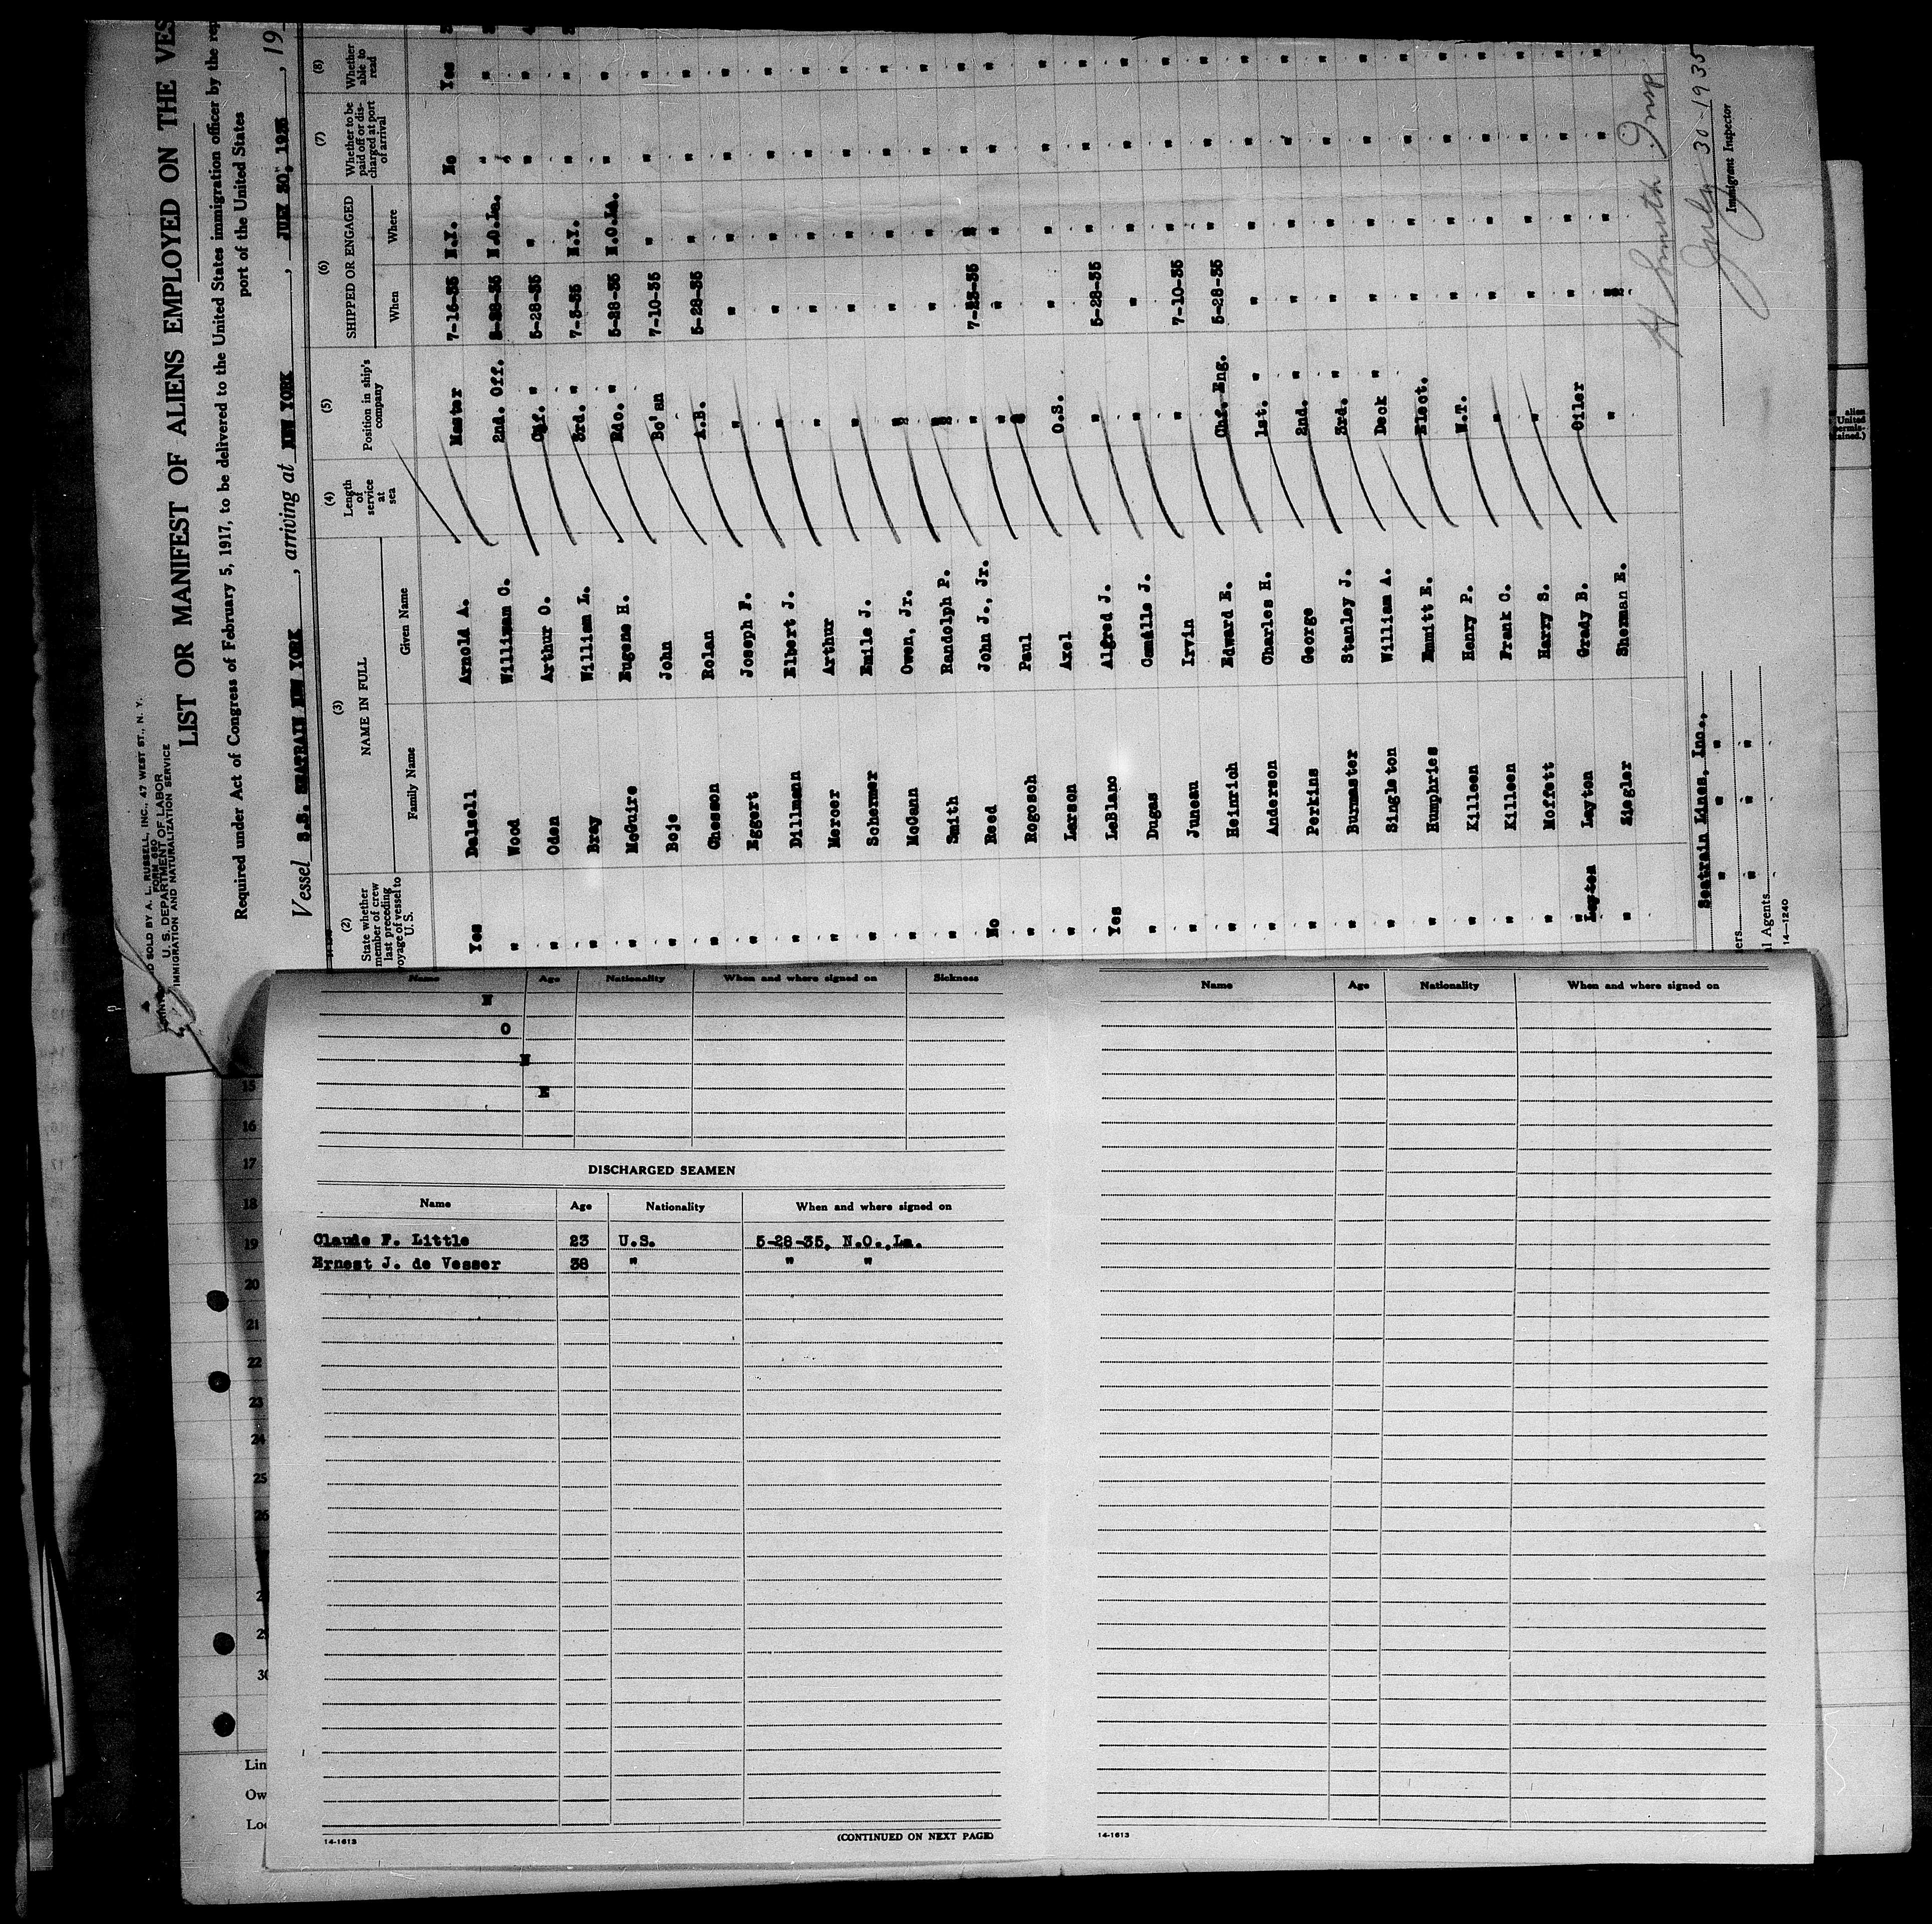 PRINTED AND SOLD BY A. L. RUSSELL, INC., 47 WEST ST., N. Y.
FORM 680
U. S. DEPARTMENT OF LABOR
IMMIGRATION AND NATURALIZATION SERVICE
LIST OR MANIFEST OF ALIENS EMPLOYED ON THE VES
Required under Act of Congress of February 5, 1917, to be delivered to the United States immigration officer by the rep
port of the United States
Vessel S.S. SEATRAIN NEW YORK, arriving at NEW YORK, JULY 30, 1935, 19
(2) (3) (4) (5) (6) (7) (8)
State whether member of crew last preceding voyage of vessel to U. S.
NAME IN FULL
Family Name Given Name
Length of service at sea
Position in ship's company
SHIPPED OR ENGAGED
When Where
Whether to be paid off or discharged at port of arrival
Whether able to read
Yes Dalzell Arnold A. Master 7-16-35 N.Y. No Yes
" Wood William C. 2nd. Off. 5-28-35 N.O.La. " "
" Oden Arthur O. Chf. " 5-28-35 " " "
" Bray William L. 3rd. " 7-3-35 N.Y. " "
" McGuire Eugene H. Rdo. " 5-28-35 N.O.La. " "
" Boje John Bo'sn 7-10-35 " " "
" Chesson Rolan A.B. 5-28-35 " " "
" Eggert Joseph F. " " " " "
" Dillmann Elbert J. " " " " "
" Mercer Arthur " " " " "
" Schermer Emile J. " " " " "
" McCann Owen, Jr. " " " " "
" Smith Randolph P. " " " " "
No Reed John J., Jr. " 7-23-35 " " "
" Rogosch Paul " " " " "
" Larson Axel O.S. " " " "
Yes LeBlanc Alfred J. " 5-28-35 " " "
" Dugas Camille J. " " " " "
" Juneau Irvin " 7-10-35 " " "
" Heinrich Edward E. Chf. Eng. 5-28-35 " " "
" Anderson Charles H. 1st. " " " " "
" Perkins George 2nd. " " " " "
" Burmaster Stanley J. 3rd. " " " " "
" Singleton William A. Deck " " " " "
" Humphries Emmitt E. Elect. " " " "
" Killeen Henry P. W.T. " " " "
" Killeen Frank C. " " " " "
" Moffett Harry S. " " " " "
" Layton Layton Grady B. Oiler " " " "
" Ziegler Sherman E. " " " " "
Seatrain Lines, Inc.,
" " "
" " "
ers
l Agents
14—1240
H Smith Insp
July 30-1935
Immigrant Inspector
Name Age Nationality When and where signed on Sickness
N
O
N
E
DISCHARGED SEAMEN
Name Age Nationality When and where signed on
Claude F. Little 23 U.S. 5-28-35, N.O.,La.
Ernest J. de Vesser 38 " " "
14-1613
(CONTINUED ON NEXT PAGE)
Name Age Nationality When and where signed on
14-1613
15
16
17
18
19
20
21
22
23
24
25
26
30
Lin
Ow
Loc